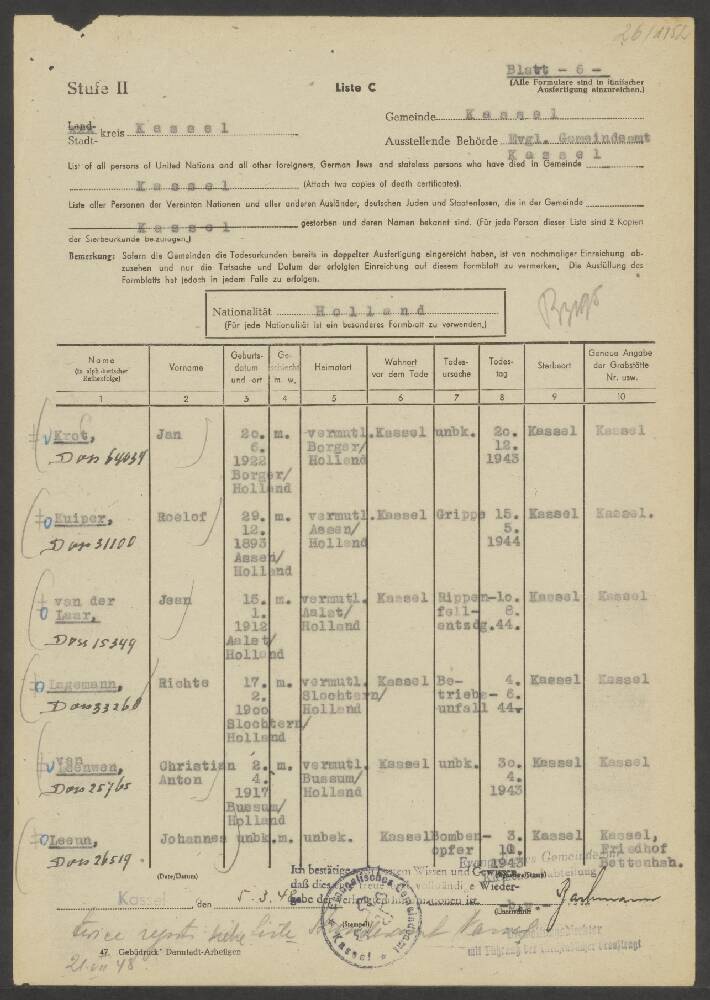 26/1152
Blatt - 6 -
(Alle Formulare sind in fünffacher
Ausfertigung einzureichen.)
Stufe II
Liste C
Gemeinde Kassel
Land-
Stadt- kreis Kassel
Ausstellende Behörde Evgl. Gemeindeamt
Kassel
List of all persons of United Nations and all other foreigners, German Jews and stateless persons who have died in Gemeinde
Kassel (Attach two copies of death certificates).
Liste aller Personen der Vereinten Nationen und aller anderen Ausländer, deutschen Juden und Staatenlosen, die in der Gemeinde
Kassel gestorben und deren Namen bekannt sind. (Für jede Person dieser Liste sind 2 Kopien
der Sterbeurkunde beizufügen.)
Bemerkung: Sofern die Gemeinden die Todesurkunden bereits in doppelter Ausfertigung eingereicht haben, ist von nochmaliger Einreichung ab-
zusehen und nur die Tatsache und Datum der erfolgten Einreichung auf diesem Formblatt zu vermerken. Die Ausfüllung des
Formblatts hat jedoch in jedem Falle zu erfolgen.
Nationalität Holland
(Für jede Nationalität ist ein besonderes Formblatt zu verwenden.)
Name (in alphabetischer Reihenfolge) Vorname Geburts-datum und -ort Ge-schlecht m. w. Heimatort Wohnort vor dem Tode Todes-ursache Todes-tag Sterbeort Genaue Angabe der Grabstätte Nr. usw.
1 2 3 4 5 6 7 8 9 10
Krot, Jan 20. m. vermutl. Kassel unbk. 20. Kassel Kassel
6. Borger/ 12.
Doss 64039 1922 Holland 1943
Borger/
Holland
Kuiper, Roelof 29. m. vermutl. Kassel Grippe 15. Kassel Kassel.
12. Assen/ 5.
Doss 31100 1893 Holland 1944
Assen/
Holland
van der Jean 15. m. vermutl. Kassel Rippen- 10. Kassel Kassel
Laar, 1. Aalst/ fell- 8.
1912 Holland entzdg. 44.
Doss 15349 Aalst/
Holland
Lagemann, Richte 17. m. vermutl. Kassel Be- 4. Kassel Kassel
2. Slochtern/ triebs- 6.
Doss 33260 1900 Holland unfall 44.
Slochtern/
Holland
van Leenwen, Christian 2. m. vermutl. Kassel unbk. 30. Kassel Kassel
Anton 4. Bussum/ 4.
Doss 25765 1917 Holland 1943
Bussum/
Holland
Leeun, Johannes unbk. m. unbek. Kassel Bomben- 3. Kassel Kassel,
opfer 10. Friedhof
Doss 26519 1943 Bettenhsh.
(Date/Datum) Ich bestätige nach bestem Wissen und Gewissen,
daß dies eine treue und vollständige Wieder-
gabe der verlangten Informationen ist.
Kassel, den 5.3.48
Evangelisches Gemeindeamt
Evangelisches Gemeindeamt
Kassel
(Stempel)
(Unterschrift)
47. Gebdruck Darmstadt-Arheilgen
21. VII 48